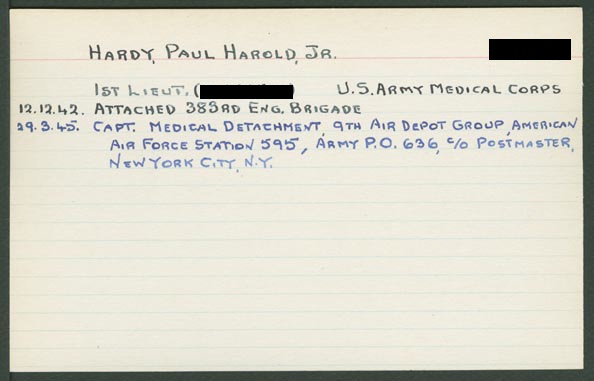 HARDY, PAUL HAROLD, JR.
1ST LIEUT. ( ) U.S. ARMY MEDICAL CORPS
12.12.42. ATTACHED 383RD ENG. BRIGADE
29.3.45. CAPT. MEDICAL DETACHMENT, 9TH AIR DEPOT GROUP, AMERICAN
AIR FORCE STATION 595, ARMY P.O. 636, C/O POSTMASTER,
NEW YORK CITY, N.Y.